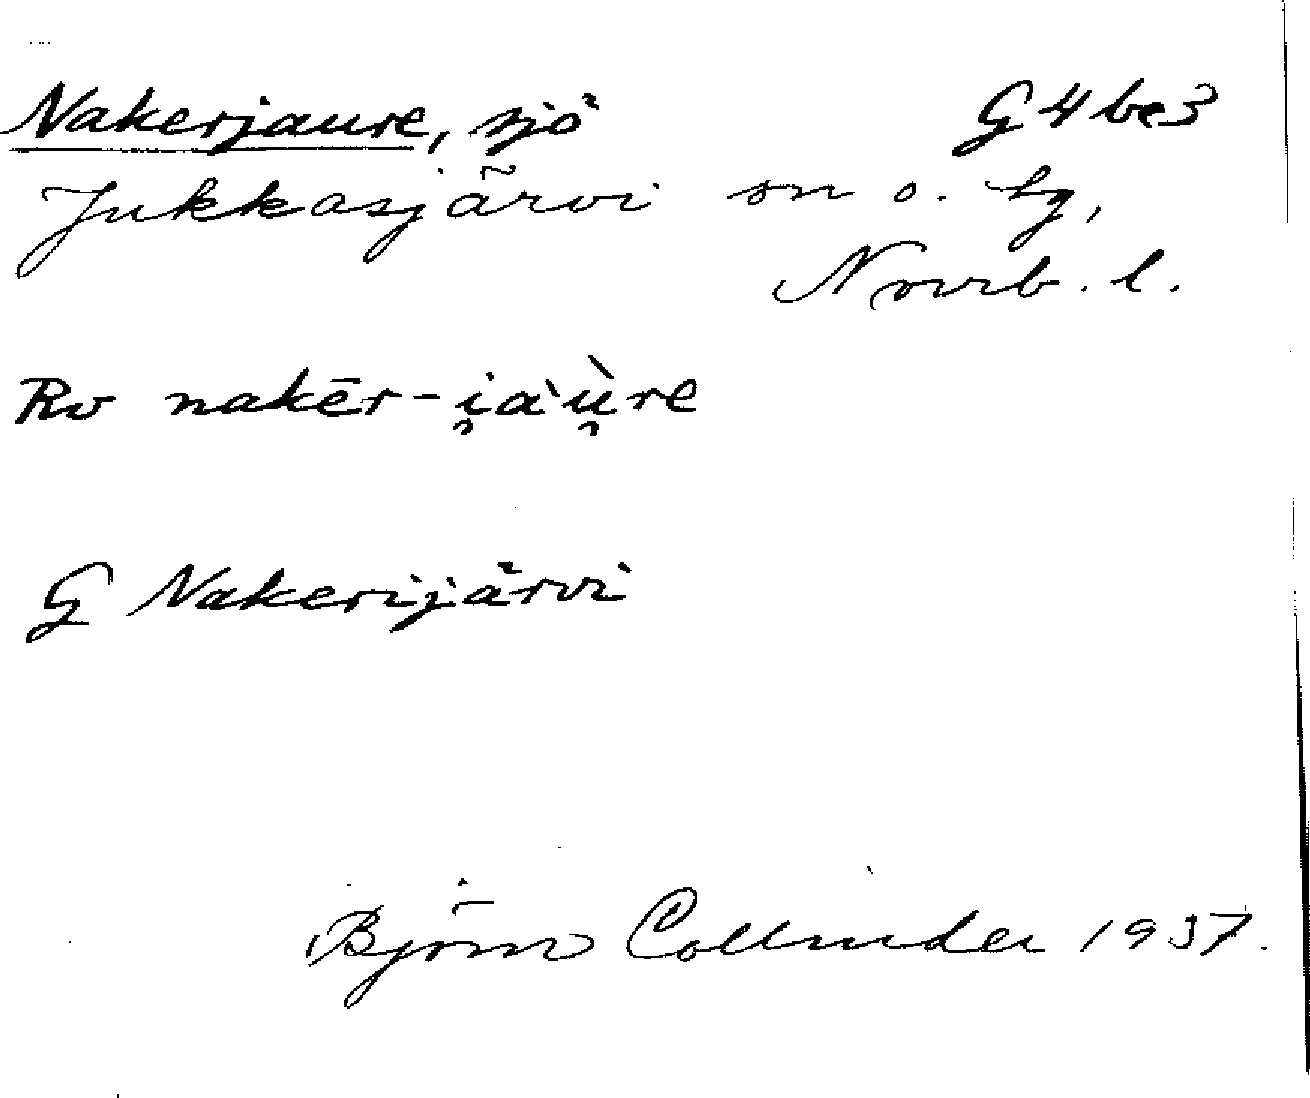 Nakerjaure, sjö G4be3
Jukkasjärvi sn o. tg,
Norrb. l.
Rv nakēr-i̯a`ù̯re
G Nakerijärvi
Björn Collinder 1937.